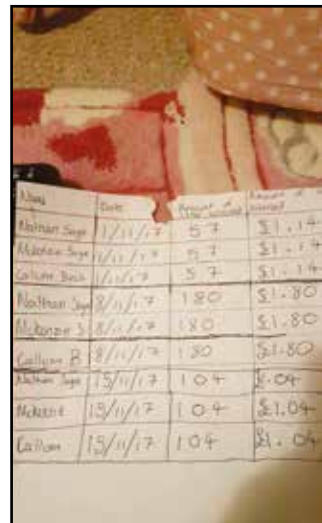 Name Date Amount of Amount of
Nathan Sage 1/11/17 57 £1.14
Mckenzie Sage 1/11/17 57 £1.14
Callum 1/11/17 57 £1.14
Nathan Sage 8/11/17 180 £1.80
Mckenzie S 8/11/17 180 £1.80
Callum B 8/11/17 180 £1.80
Nathan Sage 15/11/17 104 £.04
Mckenzie 15/11/17 104 £1.04
Callum 15/11/17 104 £1.04